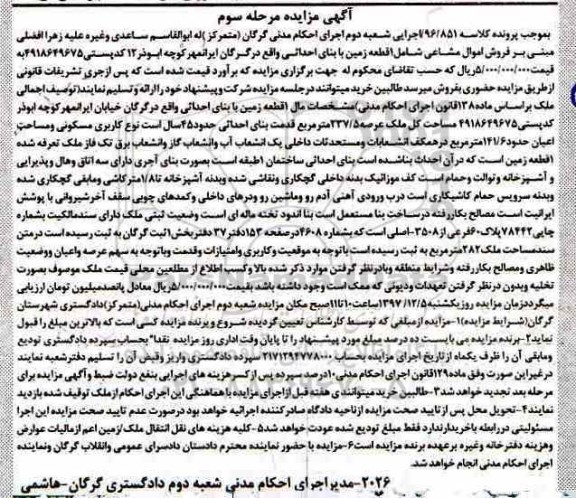 آگهی مزایده مرحله سوم
بموجب پرونده کلاسه 96/851/اجرایی شعبه دوم اجرای احکام مدنی گرگان (متمرکز)له ابوالقاسم ساعدی وغیره علیه زهرا افضلی
مبنی بر فروش اموال مشاعی شامل1قطعه زمین با بنای احداثی واقع درگرگان ایرانمهر کوچه ابوذر12 کدپستی4918649675به
قیمت5/000/000/000ریال که حسب تقاضای محکوم له جهت برگزاری مزایده که برآورد قیمت شده است که پس ازجری تشریفات قانونی
ازطریق مزایده حضوری بفروش میرسد طالبین خرید میتوانند درجلسه مزایده شرکت وپیشنهاد خود را ارائه و تسلیم نمایند(توصیف اجمالی
ملک براساس ماده138قانون اجرای احکام مدنی)مشخصات مال (قطعه زمین با بنای احداثی واقع درگرگان خیابان ایرانمهر کوچه ابوذر
کدپستی4918649675 مساحت کل ملک عرصه237/5مترمربع قدمت بنای احداثی حدود45سال است نوع کاربری مسکونی ومساحت
اعیان حدود141/6مترمربع درهمکف انشعابات ومستحدثات داخلی یک انشعاب آب وانشعاب گاز وانشعاب برق تک فاز ملک تعرفه شده
1قطعه زمین است که درآن احداث بناشده است بنای احداثی ساختمان 1طبقه است بصورت بنای آجری دارای سه اتاق وهال وپذیرایی
و آشپزخانه وتوالت وحمام است کف موزائیک بدنه داخلی گچکاری ونقاشی شده وبدنه آشپزخانه تا1/8مترکاشی ومابقی گچکاری شده
وبدنه سرویس حمام کاشیکاری است درب ورودی آهنی آدم رو وماشین رو ودرهای داخلی وکمدهای چوبی سقف آخرشیروانی با پوشش
ایرانیت است مصالح بکاررفته درساخت بنا مستعمل است بنا اندود تخته ماله ای است وضعیت ثبتی ملک دارای سندمالکیت بشماره
چاپی78442پلاک60فرعی از3508-اصلی است که بشماره 4608درصفحه 153دفتر37دفتربخش1ثبت گرگان به ثبت رسیده است درمتن
سندمساحت ملک282مترمربع به ثبت رسیده است باتوجه به موقعیت وکاربری وامتیازات وقدمت وباتوجه به سهم عرصه واعیان ووضعیت
ظاهری ومصالح بکاررفته وشرایط منطقه وبادرنظر گرفتن موارد ذکر شده بالا وکسب اطلاع از مطلعین محلی قیمت ملک موصوف بصورت
تخلیه وبدون درنظر گرفتن تعهدات ودیونی که ممکن است وجود داشته باشد بقیمت5/000/000/000ریال معادل پانصدمیلیون تومان ارزیابی
میگرددزمان مزایده روزیکشنبه1397/12/5ساعت10تا11صبح مکان مزایده شعبه دوم اجرای احکام مدنی(متمرکز)دادگستری شهرستان
گرگان(شرایط مزایده)1-مزایده ازمبلغی که توسط کارشناس تعیین گردیده شروع و برنده مزایده کسی است که بالاترین مبلغ را قبول
نماید2-برنده مزایده می بایست ده درصد مبلغ مورد پیشنهاد را تا پایان وقت اداری روز مزایده نقدا" بحساب سپرده دادگستری تودیع
ومابقی آن را ظرف یکماه از تاریخ اجرای مزایده بحساب 2171294778000 سپرده دادگستری واریز وقبض آن را تسلیم دفترشعبه نمایند
درغیراین صورت وفق ماده129قانون اجرای احکام مدنی10درصد سپرده پس از کسر هزینه های اجرایی بنفع دولت ضبط و آگهی مزایده برای
مرحله بعد تجدید خواهد شد3-طالبین خرید میتوانند ی هفته قبل ازاجرای مزایده با هماهنگی این اجرای احکام از ملک توقیف شده بازدید
نمایند4-تحویل محل پس از تایید صحت مزایده ازناحیه دادگاه صادرکننده اجرائیه خواهد بود درصورت عدم تایید صحت مزایده این اجرا
مسئولیتی دررابطه باخریدارندارد فقط مبلغ تودیع شده عودت خواهد شد5-کلیه هزینه های نقل انتقال ملک/زمین اعم ازمالیات عوارض
وهزینه دفترخانه وغیره برعهده برنده مزایده است6-مزایده با حضور نماینده محترم دادستان دادسرای عمومی وانقلاب گرگان ونماینده
اجرای احکام مدنی انجام خواهد شد.
2026-مدیراجرای احکام مدنی شعبه دوم دادگستری گرگان-هاشمی